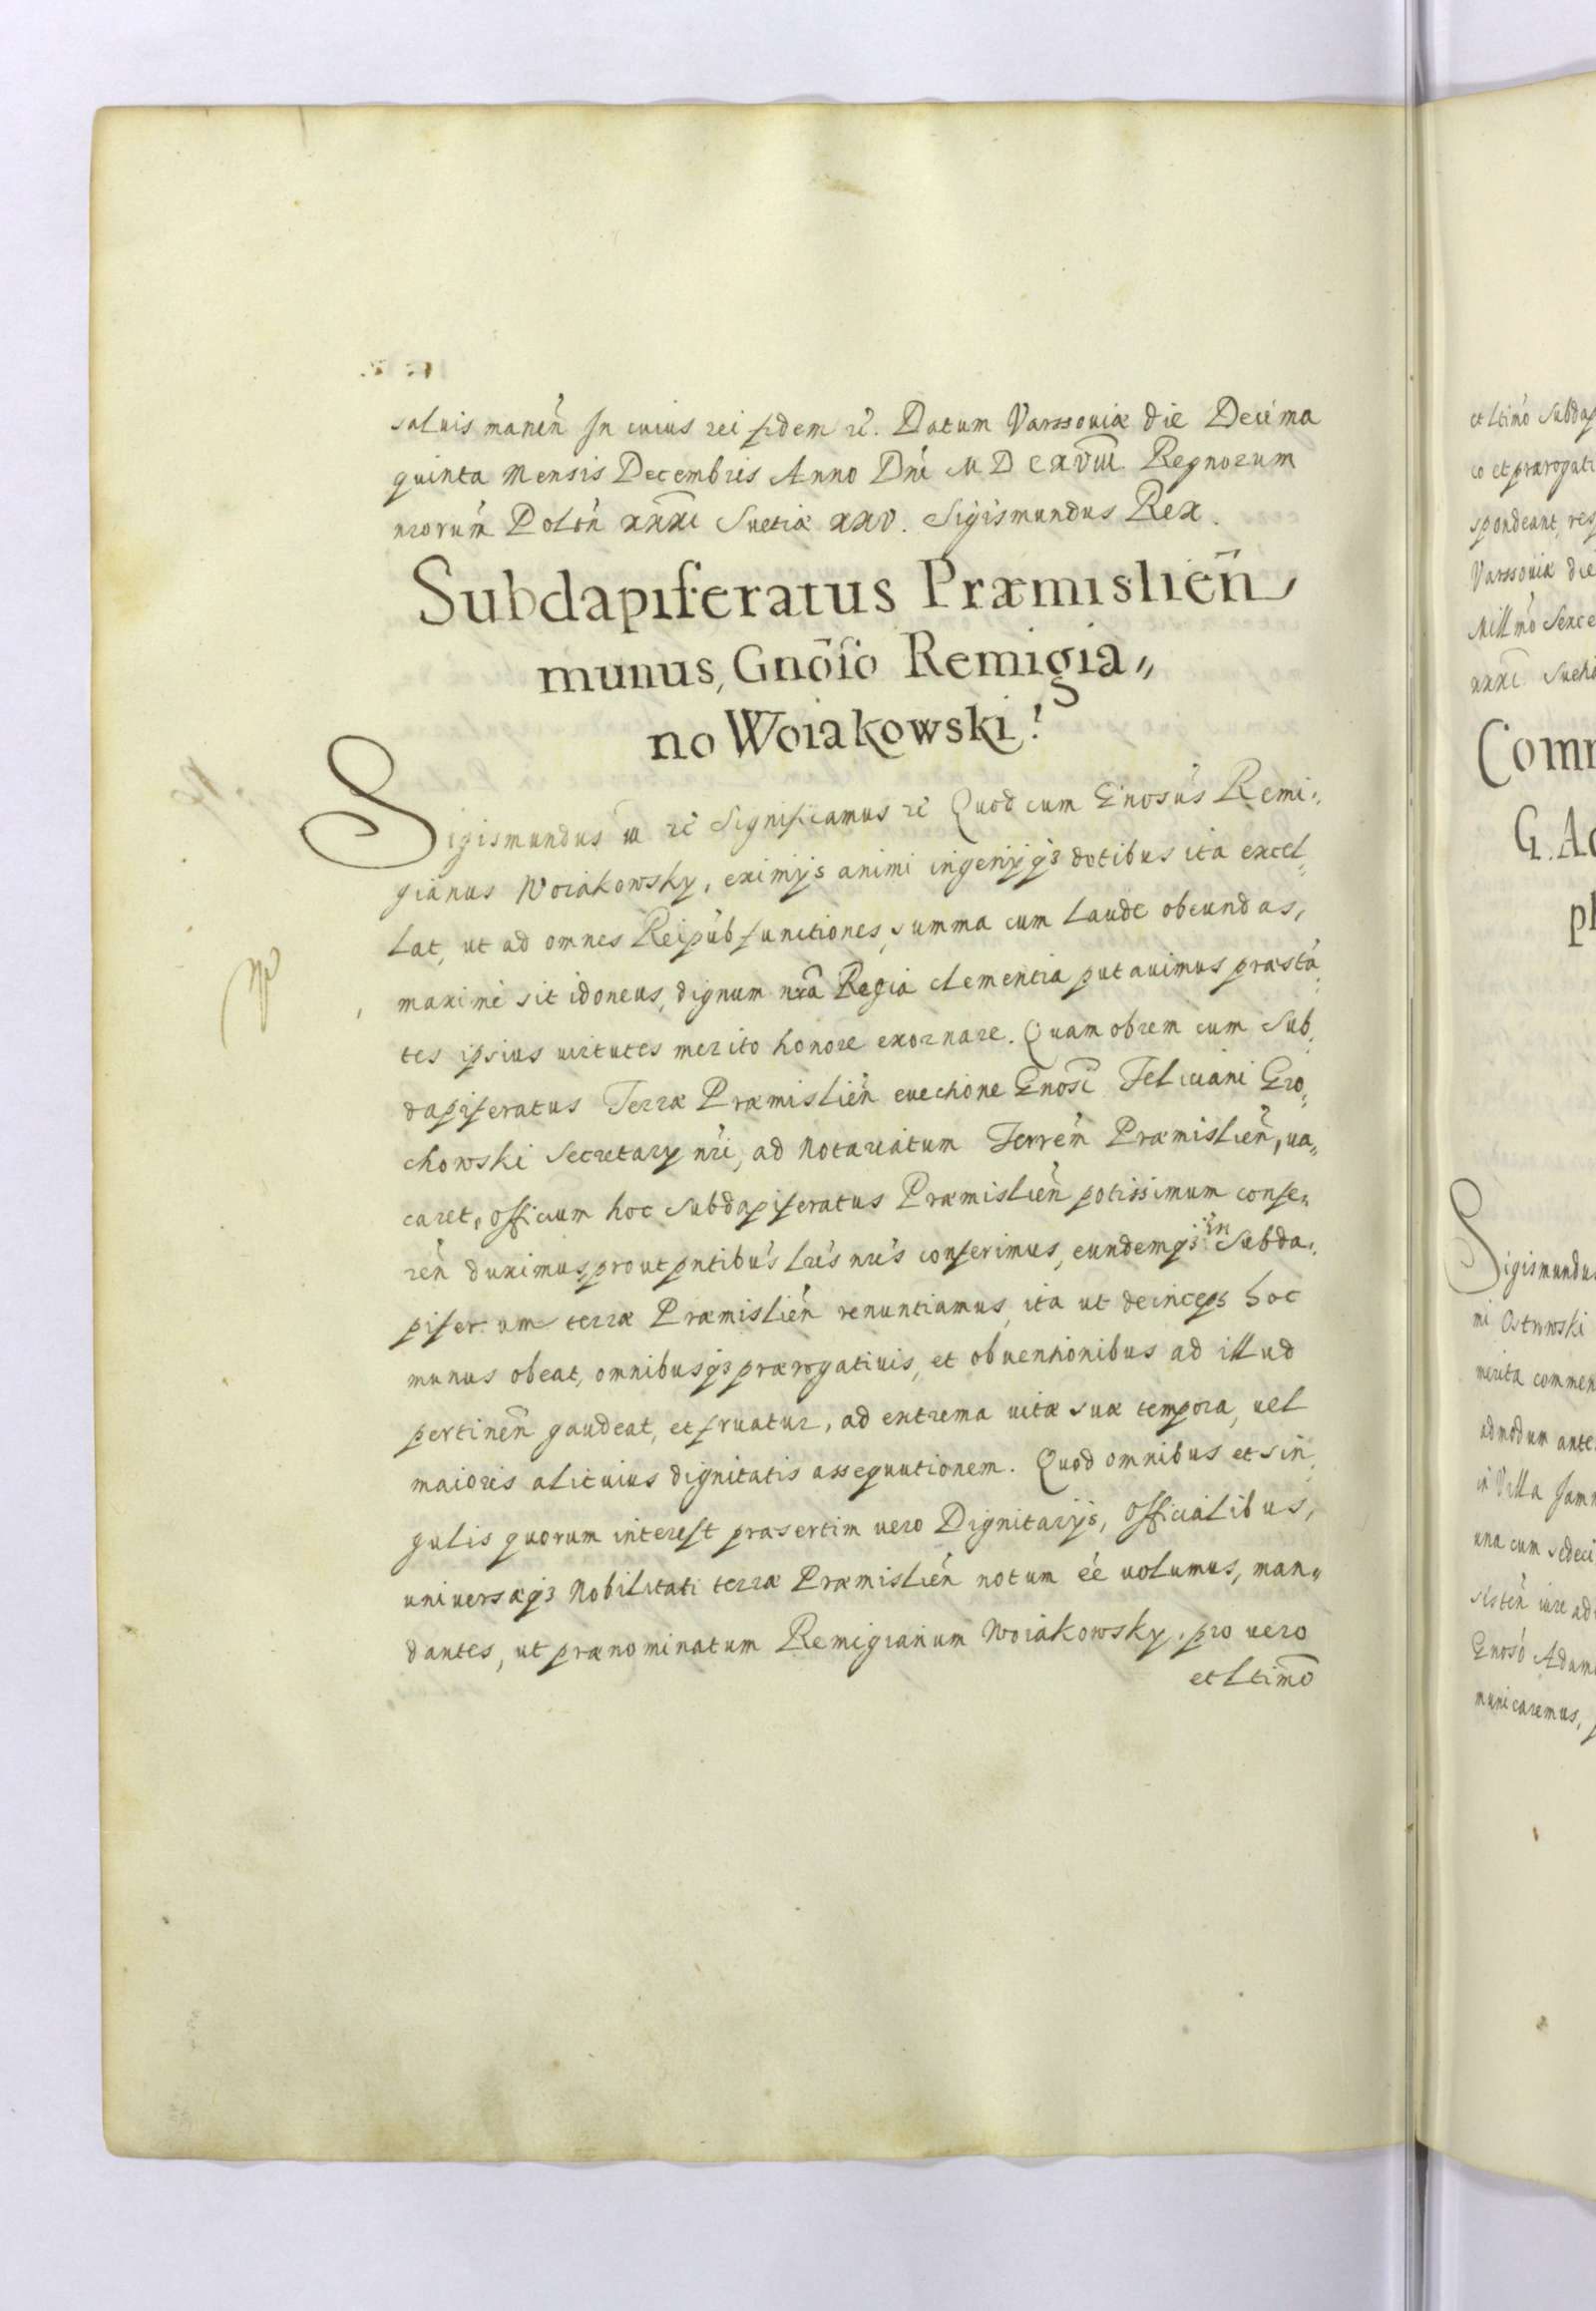 saluis manen̄ In cuius rei fidem rc̄. Datum Varssouiæ die Decima
quinta Mensis Decembris Anno Dn̄i M D CXVIII. Regnorum
nrorum̄ Polon̄ xxxi Suetiæ xxv. Sigismundus Rex.
Subdapiferatus Præmislien̄
munus, Gnōso Remigia„
no Woiakowski.
Sigismundus III rc̄ Significamus rc̄ Quod cum Gnosus̄ Remi„
gianus Woiakowsky, eximijs animi ingenijqȝ dotibus ita excel„
lat, ut ad omnes Reipub̄ functiones, summa cum laude obeundas,
maximè sit idoneus, dignum nrā Regia clementia putauimus præstā„
tes ipsius uirtutes merito honore exornare. Quam obrem cum Sub„
dapiferatus Terræ Præmislien̄ euectione Gnosī Feliciani Gro„
chowski Secretary nr̄i, ad Notariatum Terren̄ Præmislien̄, ua„
caret, officium hoc Subdapiferatus Præmislien̄ potissimum confe„
ren̄ duximus, prout pntibus̄ lrīs nrīs conferimus, eundemqȝ in Subda„
piferum terræ Præmislien̄ renuntiamus, ita ut deinceps hoc
munus obeat, omnibusqȝ prærogatiuis, et obuentionibus ad illud
pertinen̄ gaudeat, et fruatur, ad extrema uitæ suæ tempora, uel
maioris alicuius dignitatis assequutionem. Quod omnibus et sin„
gulis quorum interest præsertim uero Dignitarijs, Officialibus,
universæqȝ Nobilitati terræ Præmislien̄ notum eē uolumus, man„
dantes, ut prænominatum Remigianum Woiakowsky, pro uero
et ltimō
et ltimō Subdap
co et prærogati
spondeant, res
Varssouiæ die
Millmō Sexce
xxxi Sueti
Com
G. Ad
pl
Sigismundus
mi Ostrowski
merita commen
admodum ante
in Villa Jam
una cum sedeci
sisten̄ iure ad
Gnosō Adam
municaremus,